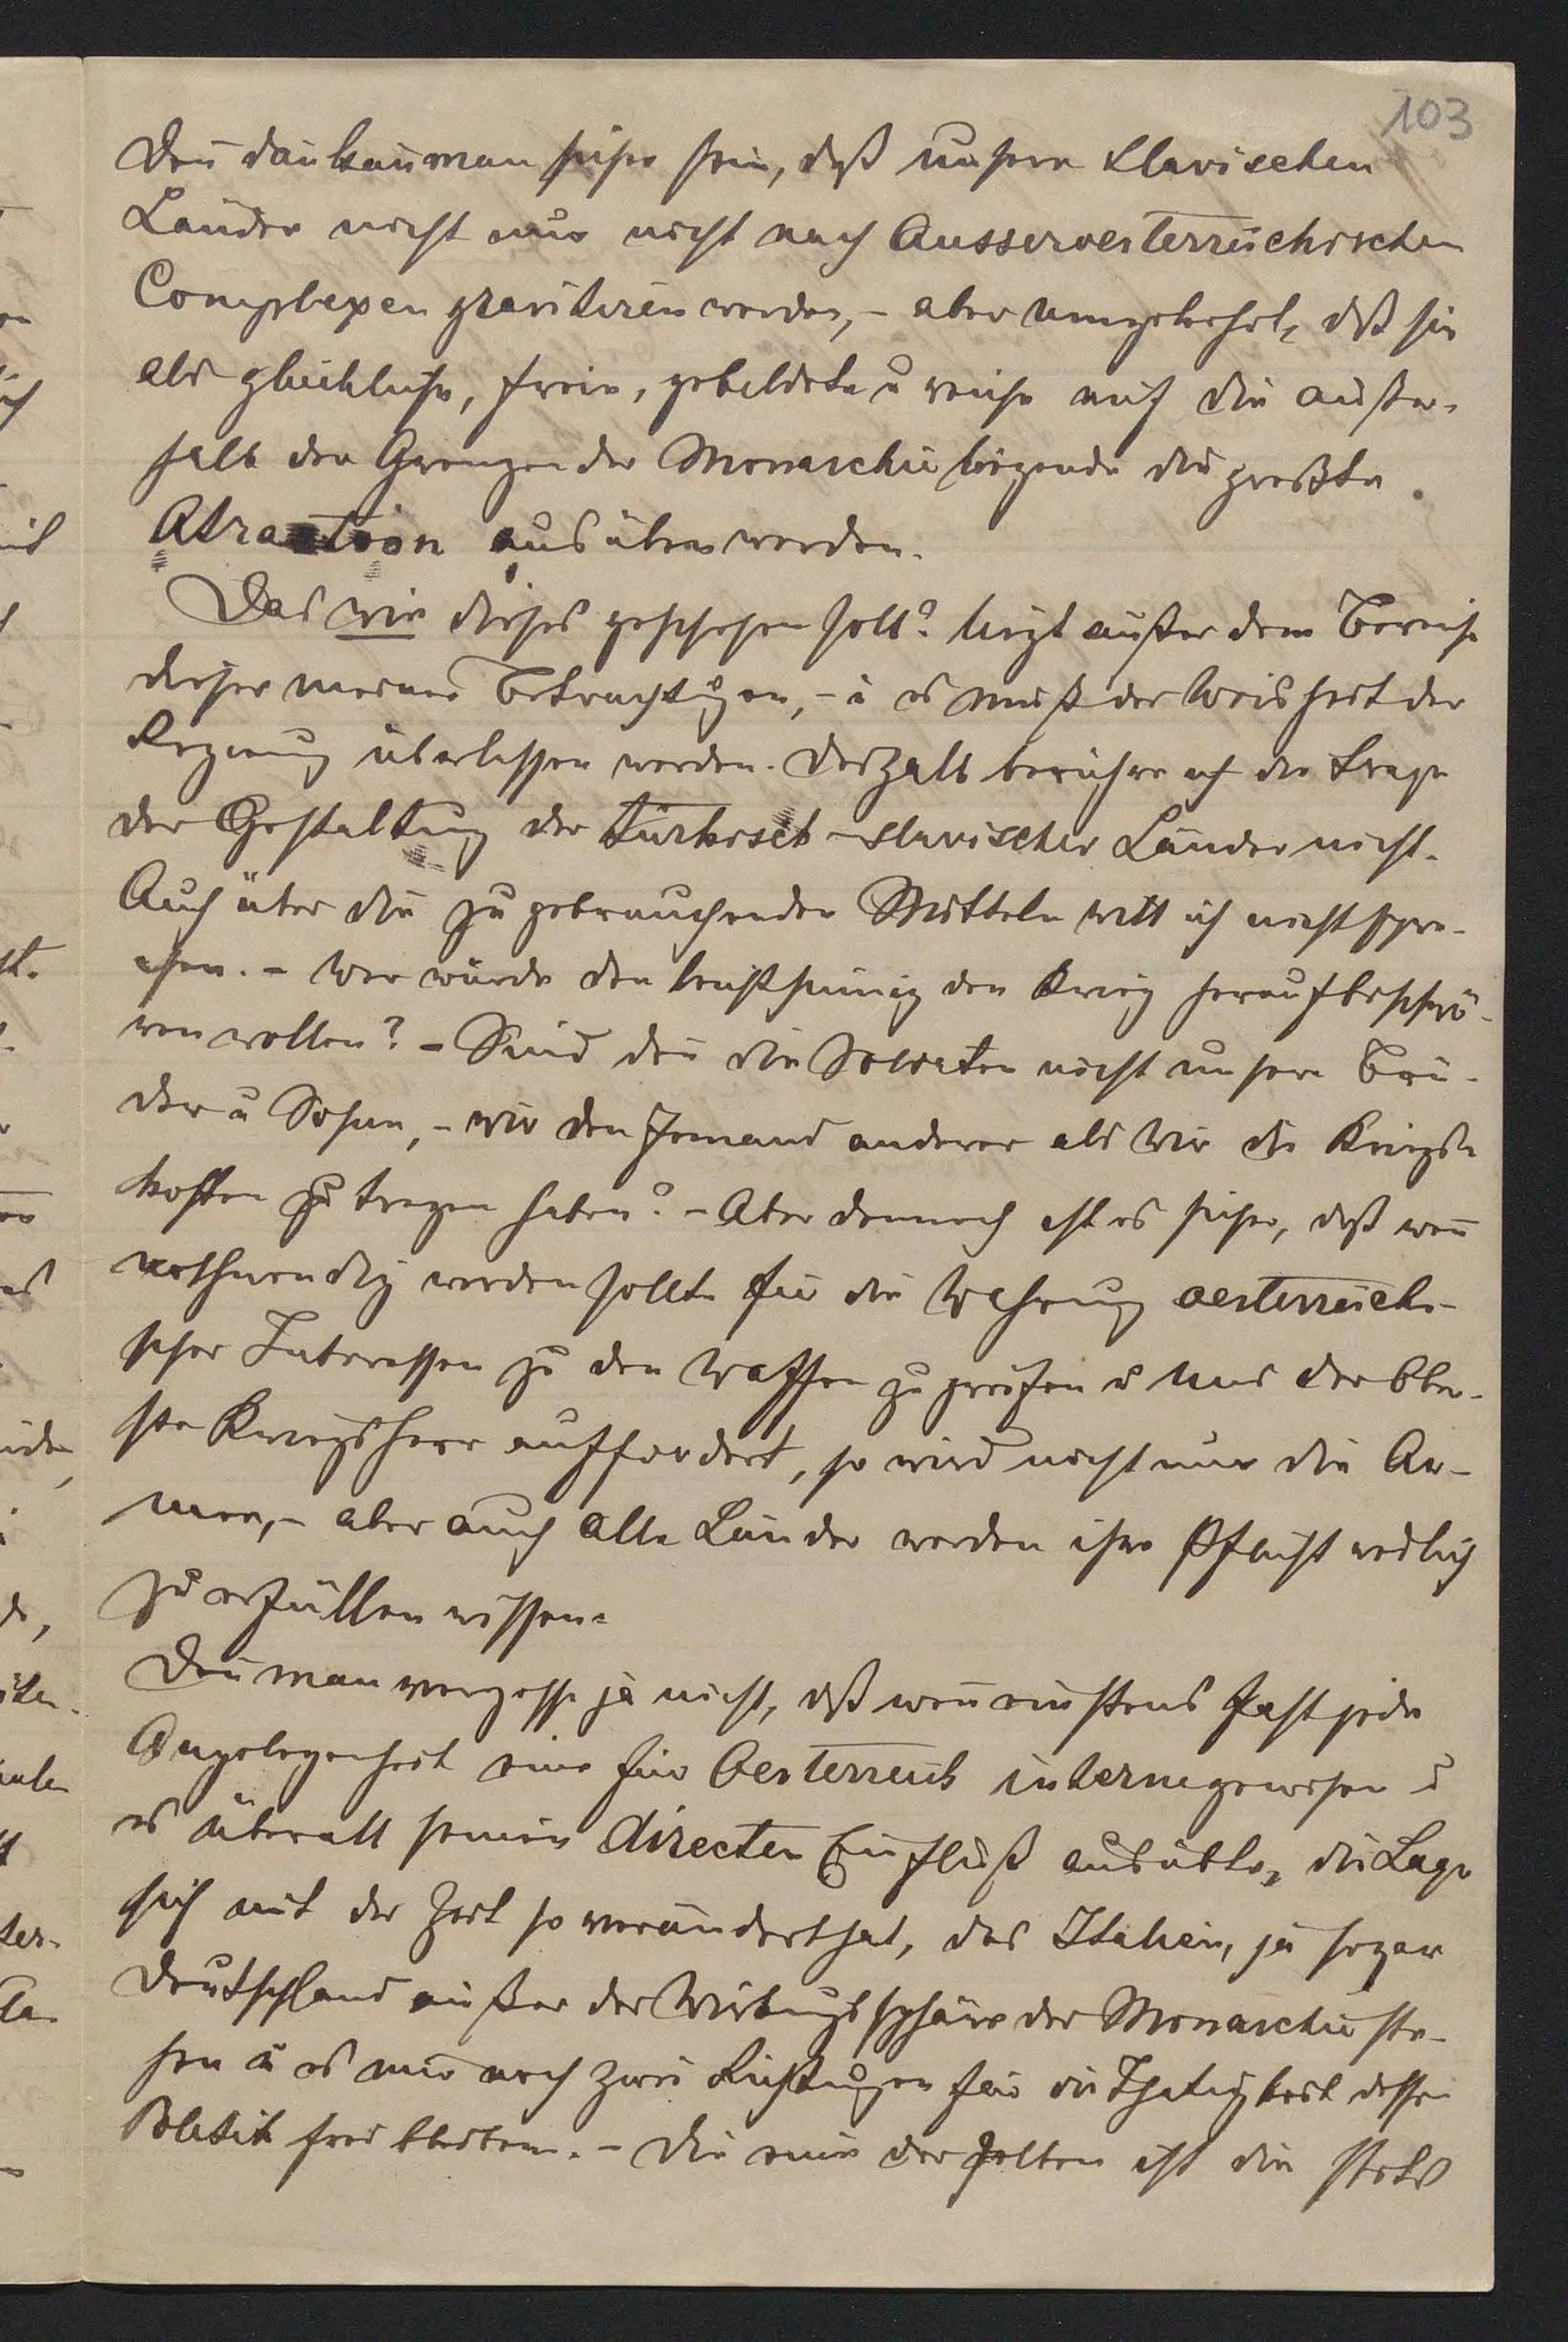 103
Deñ dañ kañ man sicher sein, daß unsere slavischen
Länder nicht nur nicht nach Ausseroesterreichischen
Complexen gravitiren werden, – aber umgekehrt, daß sie
als glückliche, freie, gebildete u reiche auf die außer-
halb den Grenzen der Monarchie liegende die großte
Atraction ausüben werden.
Das wie dieses geschehen soll? liegt außer dem Bereiche
dieser meiner Betrachtungen, – u es muß der Weisheit der
Regierung überlassen werden. Deshalb berühre ich die Frage
der Gestaltung der Türkisch-slavischer Länder nicht.
Auch über die zu gebrauchenden Mitteln will ich nicht spre-
chen. – Wer würde den leichtsinnig den Krieg heraufbeschwö-
ren wollen? – Sind deñ die Soldaten nicht unsere Brü-
der u Sohne, – wir den Jemand anderer als wir die Kriegs-
kosten zu tragen haben? – Aber dennoch ist es sicher, daß weñ
nothwendig werden sollte für die Wahrung oesterreichi-
scher Interessen zu den Waffen zu greifen u uns der Ober-
ste Kriegsherr auffordert, so wird nicht nur die Ar-
mee, – aber auch alle Länder werden ihre Pflicht redlich
zu erfüllen wissen.
Deñ man vergesse ja nicht, daß weñ einstens fast jede
Angelegenheit eine für Oesterreich interne gewesen u
es überall seinen directen Einfluß ausübte, die Lage
sich mit der Zeit so verändert hat, das Italien, ja sogar
Deutschland außer der Wirkungssphäre der Monarchie ste-
hen u es nur noch zwei Richtungen für die Thatigkeit dessen
Politik frei bleiben. – Die eine derselben ist die stets